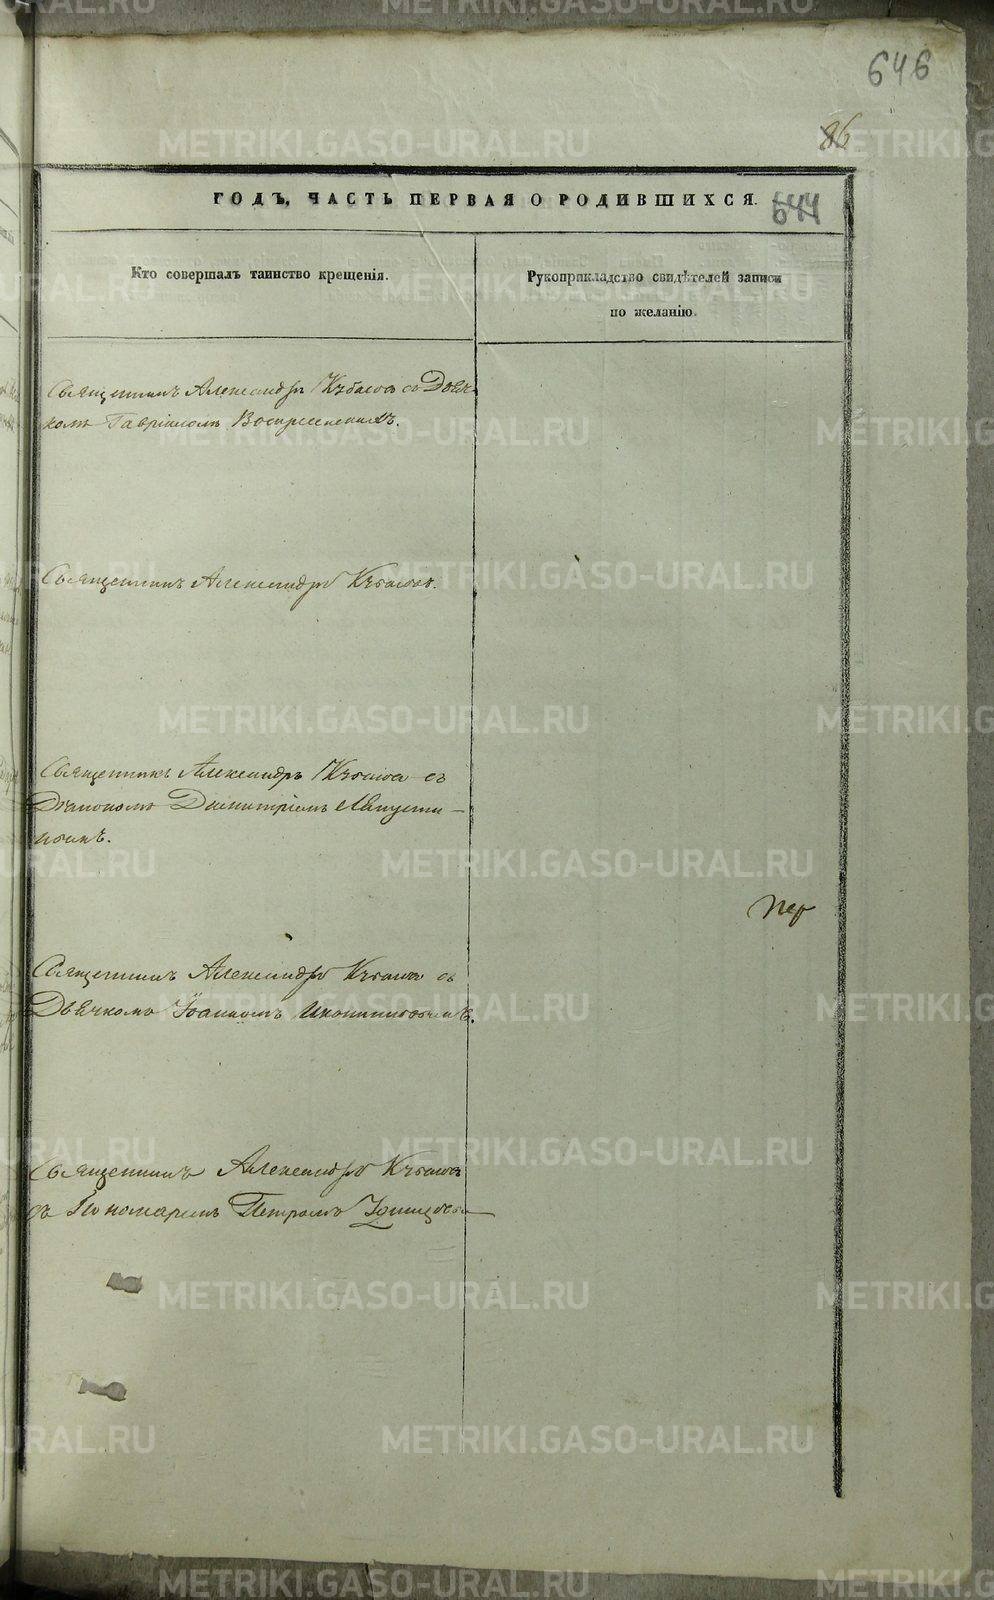 646
86
ГОДЪ, ЧАСТЬ ПЕРВАЯ О РОДИВШИХСЯ.
644
Кто совершалъ таинство крещенія.
Рукоприкладство свидѣтелей записи
по желанію.
Священникъ Александръ Кубасов съ Дьяч-
комъ Гавріиломъ Воскресенскимъ.
Священникъ Александръ Кубасовъ.
Священникъ Александръ Кубасов съ
Діакономъ Димитріемъ Августи-
новымъ.
Пер
Священникъ Александръ Кубасов съ
Дьячкомъ Іоанномъ
Священникъ Александръ Кубасов
съ Пономаремъ Петромъ
METRIKI.GASO-URAL.RU